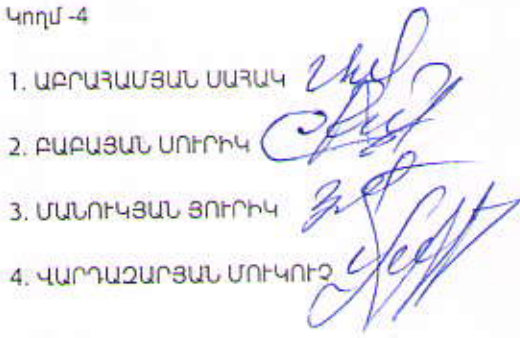 Կողմ -4
1. ԱԲՐԱՀԱՄՅԱՆ ՍԱՀԱԿ
2. ԲԱԲԱՅԱՆ ՍՈՒՐԻԿ
3. ՄԱՆՈՒԿՅԱՆ ՅՈՒՐԻԿ
4. ՎԱՐԴԱԶԱՐՅԱՆ ՄՈՒԿՈՒՉ